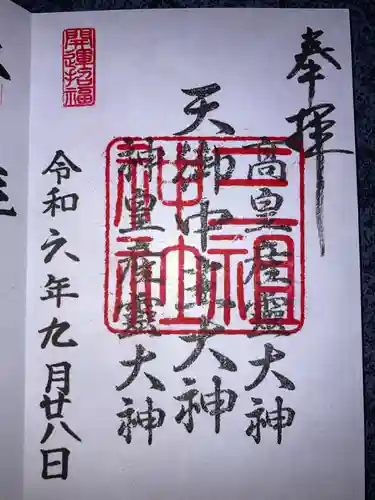 奉揮
高皇産靈大神
天御中主大神
神皇産靈大神
令和六年九月廿八日
開運招福
三祖神社